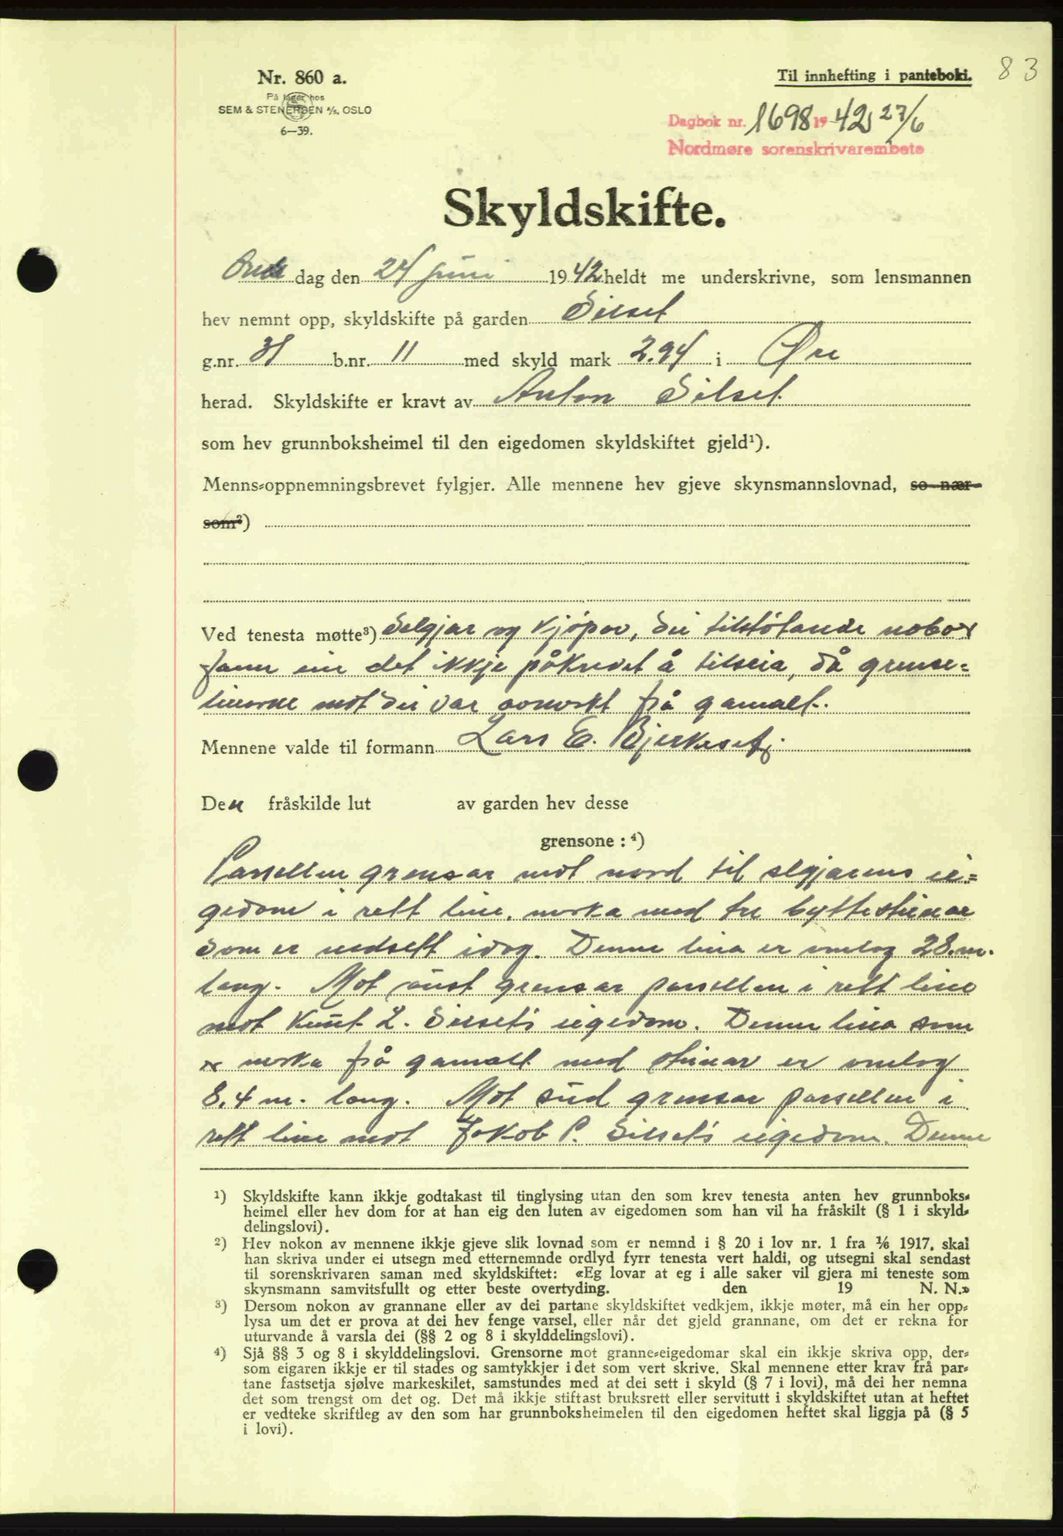 Nr. 860 a.
På lager hos
SEM & STENERSEN A/S, OSLO
6—39.
Til innhefting i panteboki.
83
Dagbok nr. 1698 19 42 27/6
Nordmøre sorenskrivarembete
Skyldskifte.
Ons dag den 24 juni 1942 heldt me underskrivne, som lensmannen
hev nemnt opp, skyldskifte på garden Silset
g.nr. 31 b.nr. 11 med skyld mark 2.94 i Øre
herad. Skyldskifte er kravt av Anton Silset
som hev grunnboksheimel til den eigedomen skyldskiftet gjeld¹).
Menns-oppnemningsbrevet fylgjer. Alle mennene hev gjeve skynsmannslovnad, so nær-
som²)
Ved tenesta møtte³) Selgjar og kjøpar, dei tilstøtande naboar
fann ein det ikkje påkrevet å tilseia, då grense-
linorne mot dei var merkt frå gamalt.
Mennene valde til formann Lars E. Bjerkeset
Den fråskilde lut av garden hev desse
grensone : ⁴)
Parsellen grensar mot nord til selgjarens ei-
gedom i rett line, merka med tre byttesteinar
som er nedsett idag. Denne lina er omlag 28. m.
lang. Mot aust grensar parsellen i rett line
mot Knut L. Silset's eigedom. Denne lina som
er merka frå gamalt med steinar er omlag
8,4 m. lang. Mot süd grensar parsellen i
rett line mot Jakob P. Silset's eigedom. Denne
¹) Skyldskifte kann ikkje godtakast til tinglysing utan den som krev tenesta anten hev grunnboks-
heimel eller hev dom for at han eig den luten av eigedomen som han vil ha fråskilt (§ 1 i skyld-
delingslovi).
²) Hev nokon av mennene ikkje gjeve slik lovnad som er nemnd i § 20 i lov nr. 1 fra 1/6 1917, skal
han skriva under ei utsegn med etternemnde ordlyd fyrr tenesta vert haldi, og utsegni skal sendast
til sorenskrivaren saman med skyldskiftet: «Eg lovar at eg i alle saker vil gjera mi teneste som
skynsmann samvitsfullt og etter beste overtyding. den 19 N. N.»
³) Dersom nokon av grannane eller av dei partane skyldskiftet vedkjem, ikkje møter, må ein her opp-
lysa um det er prova at dei hev fenge varsel, eller når det gjeld grannane, om det er rekna for
uturvande å varsla dei (§§ 2 og 8 i skylddelingslovi).
⁴) Sjå §§ 3 og 8 i skylddelingslovi. Grensorne mot granne-eigedomar skal ein ikkje skriva opp, der-
som eigaren ikkje er til stades og samtykkjer i det som vert skrive. Skal mennene etter krav frå par-
tane fastsetja sjølve markeskilet, samstundes med at dei sett i skyld (§ 7 i lovi), må dei her nemna
det som trengst om det og. Det må ikkje stiftast bruksrett eller servitutt i skyldskiftet utan at heftet
er vedteke skriftleg av den som har grunnboksheimelen til den eigedomen heftet skal liggja på (§ 5
i lovi).